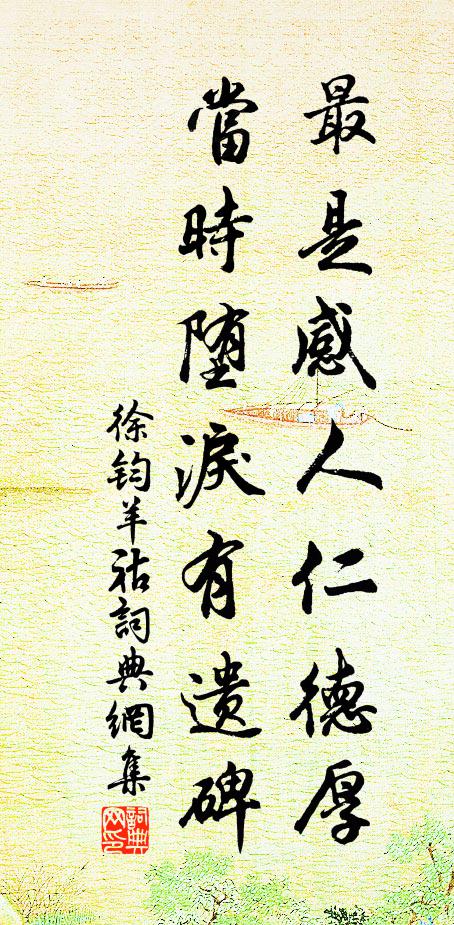 最是感人仁德厚
當時堕淚有遺碑
徐鈞羊祜詞典網集
詞典网印